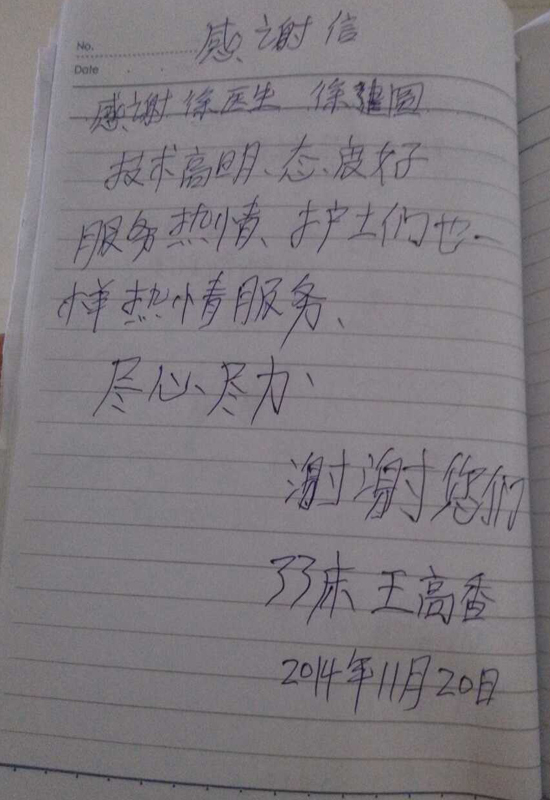 No.
感谢信
Date
感谢徐医生 徐建圆
技术高明、态度好
服务热情、护士们也一
样热情服务、
尽心、尽力、
谢谢您们
33床 王高香
2014年11月20日